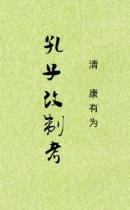 清 康有为
孔子改制考